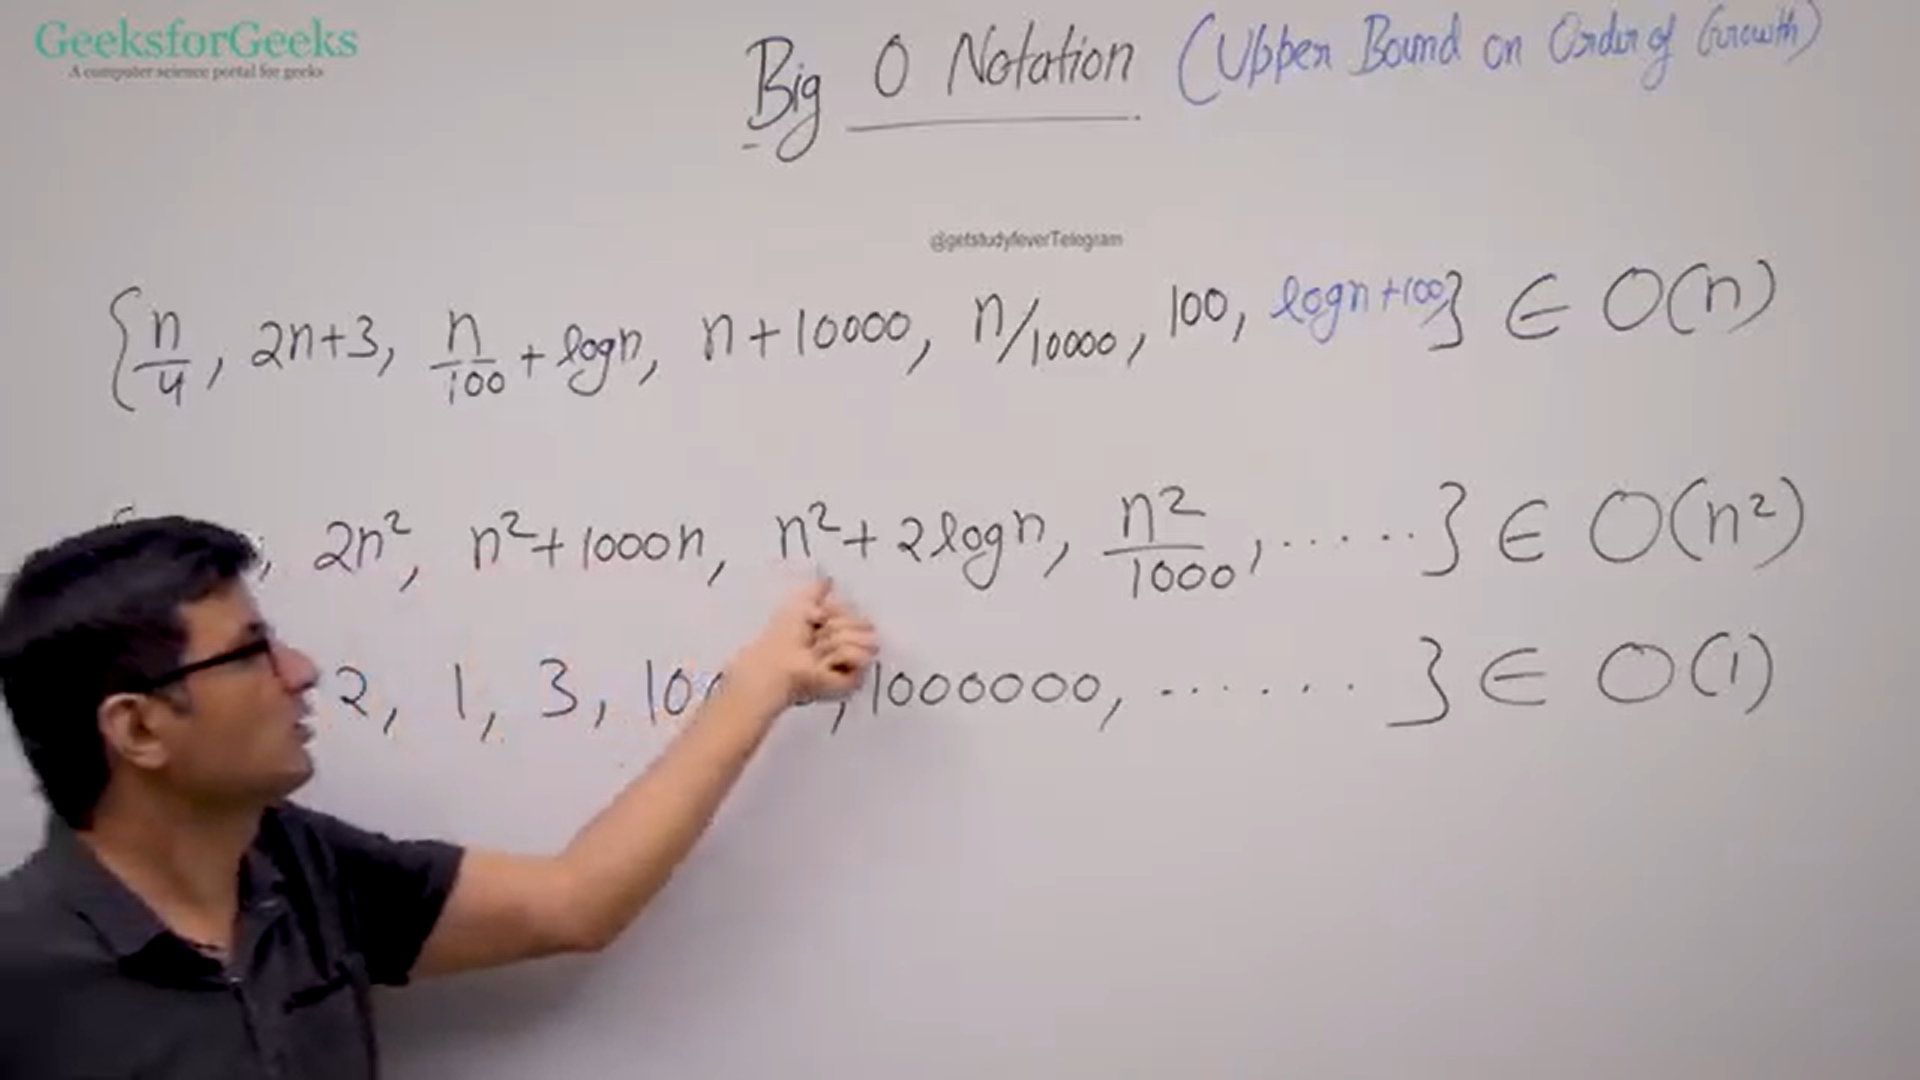 GeeksforGeeks
A computer science portal for geeks
Big O Notation (Upper Bound on Order of Growth)
@getstudyfeverTelegram
{n/4, 2n+3, n/100 + logn, n+10000, n/10000, 100, logn+100} ∈ O(n)
, 2n², n²+1000n, n²+2logn, n²/1000, ......} ∈ O(n²)
2, 1, 3, 1000000, ......} ∈ O(1)